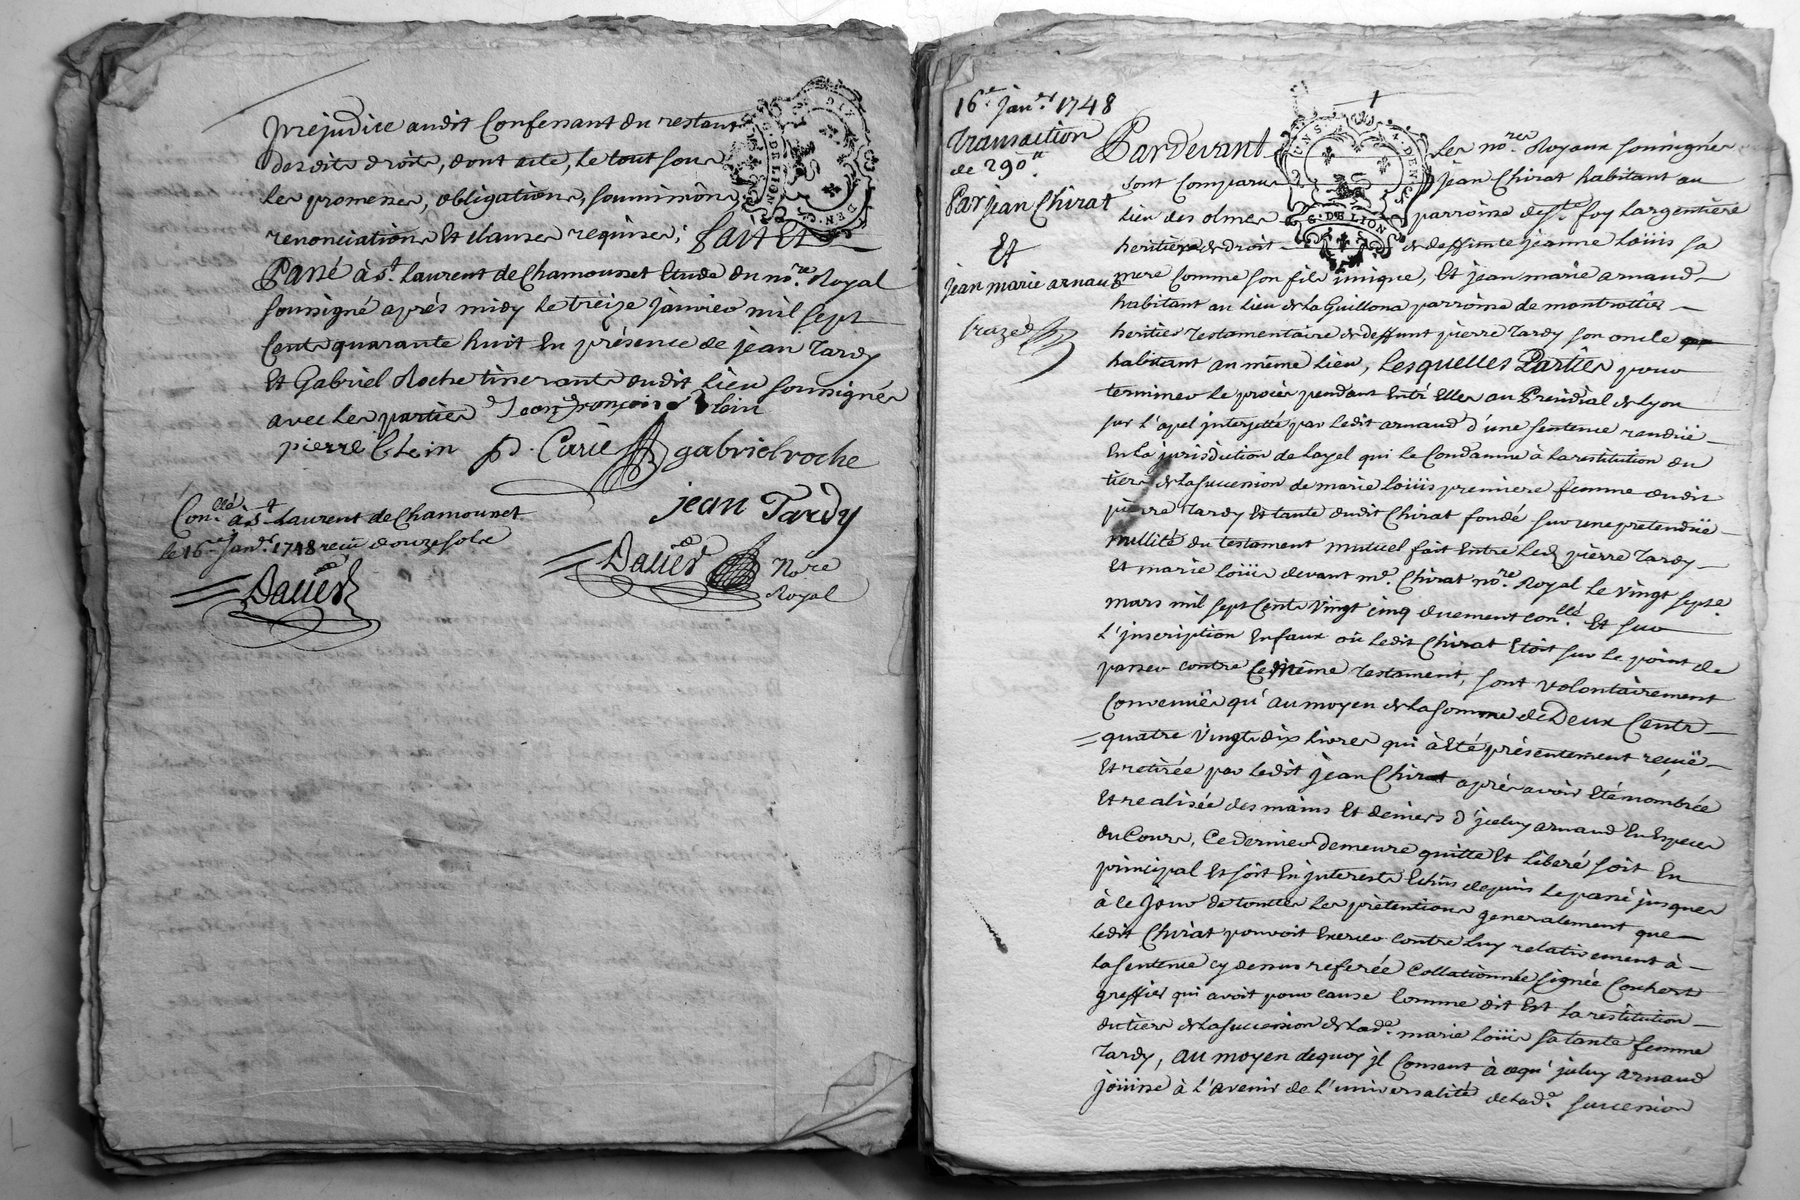 préjudice audit Confenant du restant
desdits droits, dont acte, le tout sous
les promesses, obligations, soumissions,
renonciations Et clauses requises; fait Et
Passé à St. Laurent de Chamousset Etude du nore. Royal
soussigné aprés midy le treize janvier mil sept
Cents quarante huit En présence de jean Tardy
Et Gabriel Roche tisserants dudit Lieu soussignés
avec les parties
pierre P. Carie gabriel roche
jean Tardy
Conllé. à St Laurent de Chamousset
le 16e janr. 1748 reçu douze sols
Nore
Royal
G. DE LION
16e. janr. 1748
Transaction
de 290tt.
Par jean Chirat
Et
jean marie arnaud
Pardevant Les nores. Royaux soussignés
sont Comparus jean Chirat habitant au
Lieu des olmes parroisse de Ste. foy Largentiere
heritier de droit de deffunte jeanne Loüis sa
mere Comme son fils unique, Et jean marie arnaud
habitant au Lieu de La Guillona parroisse de montrottier
heritier testamentaire de deffunt pierre Tardy son oncle
habitant au même Lieu, Lesquelles Parties pour
terminer le procès pendant Entre Elles au Presidial de Lyon
sur l'apel interjetté par Ledit arnaud d'une sentence rendüe
En La jurisdiction de Layel qui le Condamne à la restitution du
tiers de la succession de marie Loüis premiere femme dudit
pierre Tardy Et tante dudit Chirat fondé sur une prétendüe
nullité du testament mutuel fait Entre Led. pierre Tardy
Et marie Loüis devant me. Chirat nore. Royal Le vingt sept
mars mil sept Cents vingt cinq duement conllé. Et sur
l'inscription En faux où Ledit Chirat Etoit sur le point de
passer contre Ce même testament, sont volontairement
Convenües qu'au moyen de la somme de Deux Cents
quatre vingts dix livres qui à Eté présentement reçuë
Et retirée par ledit jean Chirat après avoir Eté nombrée
Et realisée des mains Et deniers d'jceluy arnaud En Especes
du Cours, Ce dernier demeure quitte Et liberé soit En
principal Et soit En jnterests Echus depuis le passé jusques
à ce jour de touttes les prétentions generalement que
Ledit Chirat pouvoit Exercer contre luy relativement à
la sentence cy dessus referée Collationnée signée Couhert
greffier qui avoit pour cause Comme dit Est La restitution
du tiers de la succession de lade. marie Loüis sa tante femme
Tardy, au moyen dequoy jl Consent à cequ'jceluy arnaud
joüisse à l'avenir de l'universalité de lade. succession